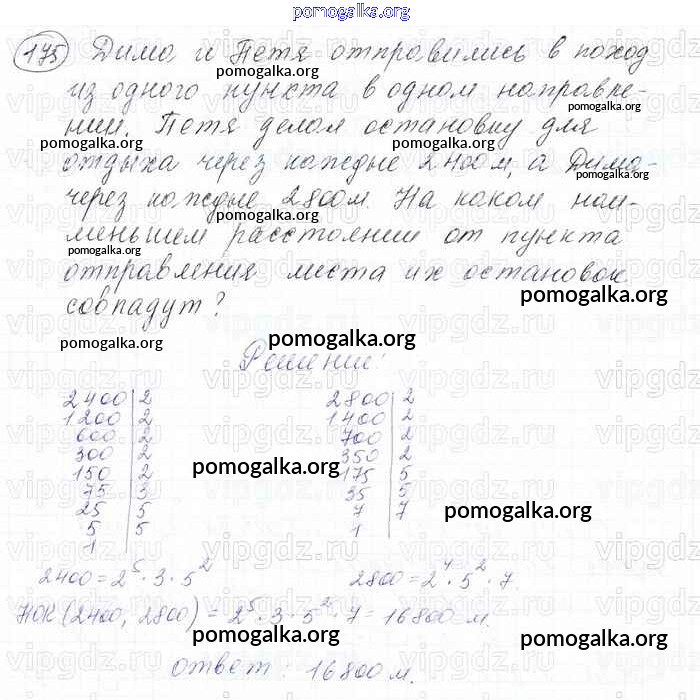 pomogalka.org
175 Дима и Петя отправились в поход
pomogalka.org
из одного пункта в одном направле-
pomogalka.org pomogalka.org
нии. Петя делал остановку для
отдыха через каждые 2400 м, а Дима -
pomogalka.org
через каждые 2800 м. На каком наи-
pomogalka.org
меньшем расстоянии от пункта
pomogalka.org
отправления места их остановок
pomogalka.org
совпадут?
pomogalka.org pomogalka.org
Решение:
2400 | 2 2800 | 2
1200 | 2 1400 | 2
600 | 2 700 | 2
300 | 2 350 | 2
150 | 2 175 | 5
75 | 3 35 | 5
25 | 5 7 | 7
5 | 5 1
1
pomogalka.org
pomogalka.org
2400 = 2⁵ · 3 · 5² 2800 = 2⁴ · 5² · 7
НОК (2400, 2800) = 2⁵ · 3 · 5² · 7 = 16800 м.
pomogalka.org pomogalka.org
ответ: 16800 м.
vipgdz.ru